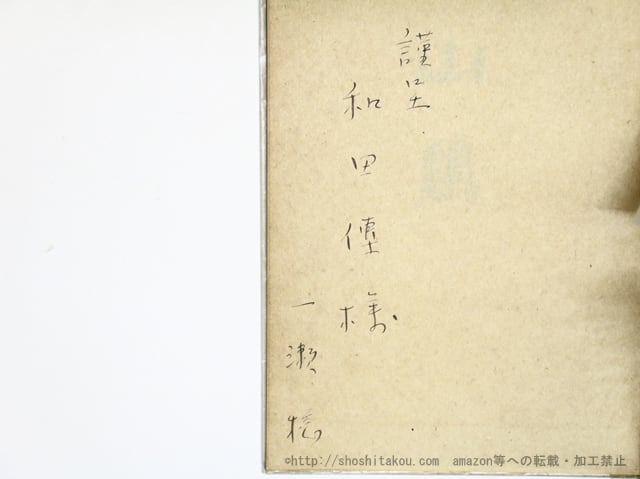 謹呈
和田傳様
一瀬
©http://shoshitakou.com amazon等への転載・加工禁止